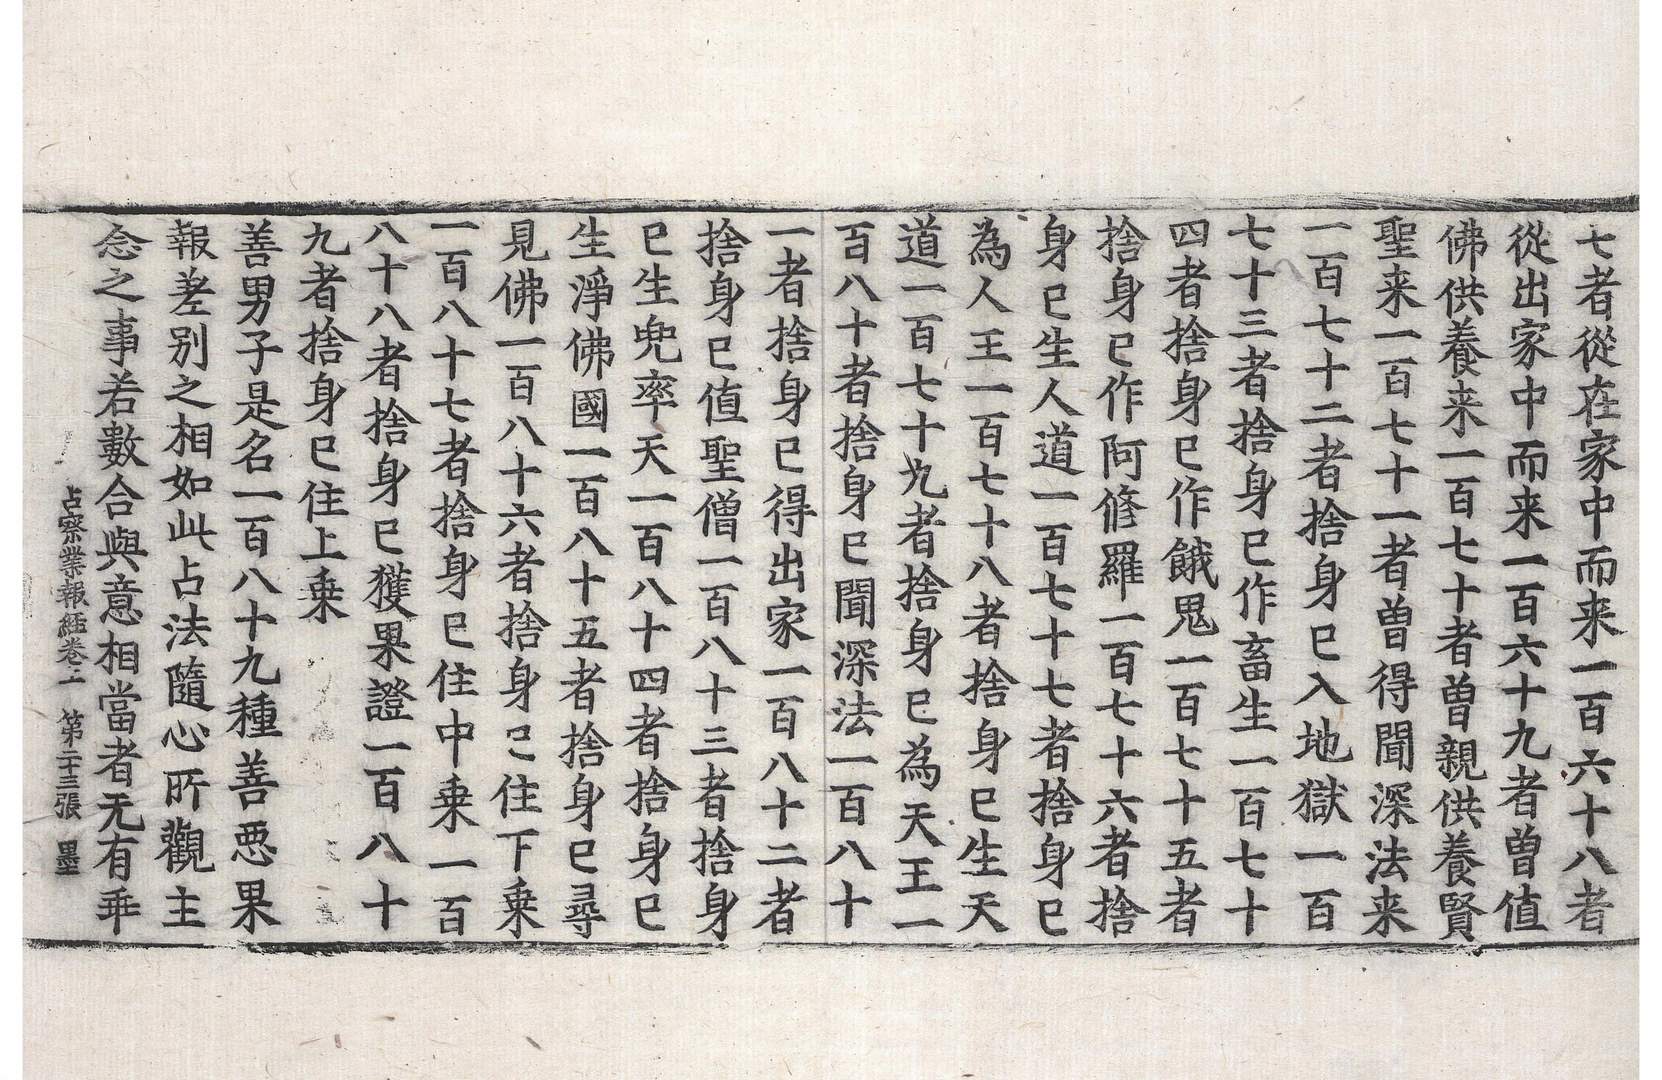 七者從在家中而来一百六十八者
從出家中而来一百六十九者曽值
佛供養来一百七十者曽親供養賢
聖来一百七十一者曽得聞深法来
一百七十二者捨身已入地獄一百
七十三者捨身已作畜生一百七十
四者捨身已作餓鬼一百七十五者
捨身已作阿脩羅一百七十六者捨
身已生人道一百七十七者捨身已
為人王一百七十八者捨身已生天
道一百七十九者捨身已為天王一
百八十者捨身已聞深法一百八十
一者捨身已得出家一百八十二者
捨身已值聖僧一百八十三者捨身
已生兜率天一百八十四者捨身已
生淨佛國一百八十五者捨身已尋
見佛一百八十六者捨身已住下乗
一百八十七者捨身已住中乗一百
八十八者捨身已獲果證一百八十
九者捨身已住上乗
善男子是名一百八十九種善悪果
報差别之相如此占法隨心所觀主
念之事若數合與意相當者无有乖
占察業報經卷上 第二十三張 墨